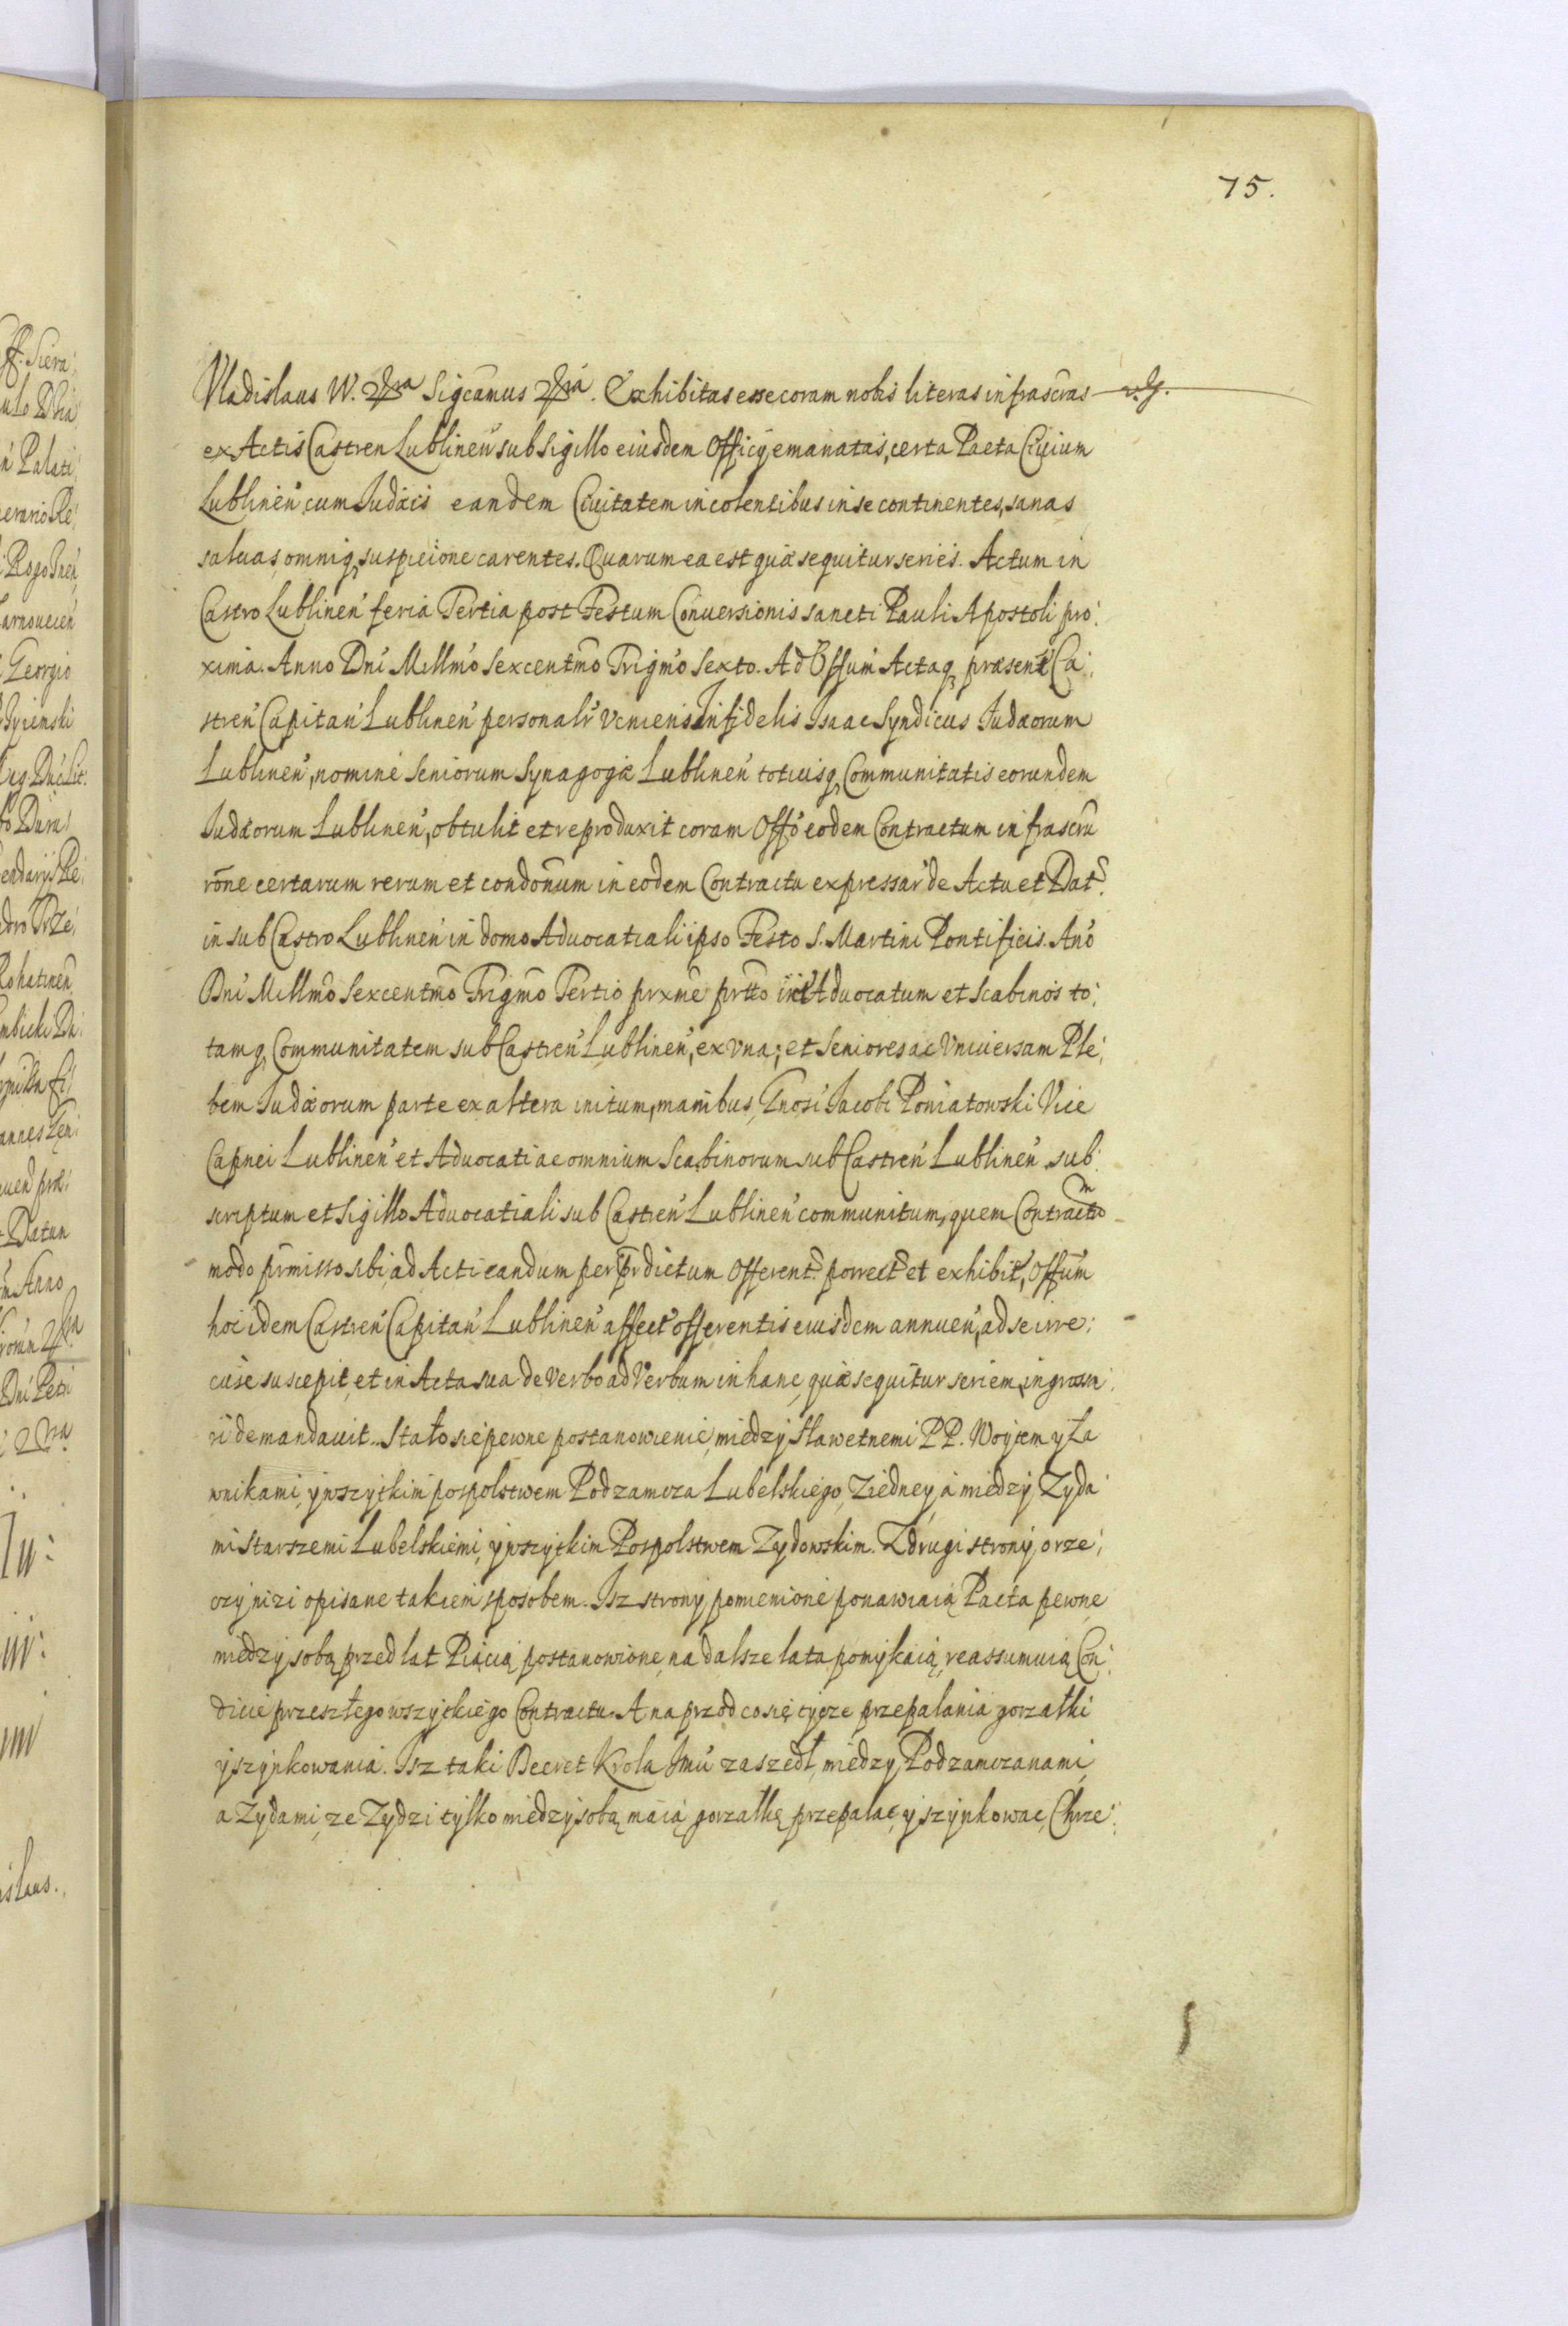 75.
Vladislaus W. 2ſſra Sigcamus 2ſſria. Exhibitas esse coram nobis literas infrascras
ex Actis Castren Lublinen̄ sub Sigillo eiusdem Officÿ emanatas, certa Pacta Civium
Lublinen̄ cum Judæis eandem Ciuitatem incolentibus in se continentes, sanas
saluas, omniq, suspicione carentes. Quarum ea est quæ sequitur series. Actum in
Castro Lublinen̄ feria Tertia post Festum Conuersionis sancti Pauli Apostoli pro:
xima. Anno Dni Millmo Sexcentmo Trigmo Sexto. Ad Offum Actaq, præsen Ca:
stren̄ Capitan̄ Lublinen̄ personalr veniens Infidelis Isaac Syndicus Judæorum
Lublinen̄, nomine Seniorum Synagogæ Lublinen̄ totiusq, Communitatis eorundem
Judæorum Lublinen̄, obtulit et reproduxit coram Offo eodem Contractum infrascru
rōne certarum rerum et condōnum in eodem Contractu expressar de Actu et Dat.
in sub Castro Lublinen̄ in domo Aduocatiali ipso Festo S. Martini Pontificis. Ano
Dni Millmo Sexcentmo Trigmo Tertio prxme prtto int Aduocatum et Scabinos to:
tamq, Communitatem sub Castren̄ Lublinen̄, ex vna; et Seniores ac Vniuersam Ple:
bem Judæorum parte ex altera initum, manibus, Gnosi Jacobi Poniatowski Vice
Capnei Lublinen̄ et Aduocati ac omnium Scabinorum sub Castren̄ Lublinen̄ sub:
scriptum et Sigillo Aduocatiali sub Castren̄ Lublinen̄ communitum, quem Contractm
modo prmisso sibi ad Acticandum per prdictum Offerent. porrect et exhibit, Offum
hoc idem Castren̄ Capitan̄ Lublinen̄ affect offerentis eiusdem annuen̄, ad se irre:
cuse suscepit, et in Acta sua de verbo ad Verbum in hanc, quæ sequitur seriem, ingrossa:
ri demandauit. Stało sie pewne postanowienie, miedzy Sławetnemi PP. Woytem y Ła
wnikami, y wszytkim pospolstwem Podzamcza Lubelskiego, Ziedney, á miedzy Zyda
mi Starszemi Lubelskiemi, y wszytkim Pospolstwem Zydowskim. Z drugi strony, o rze:
czy nizi opisane takiem sposobem. Isz strony pomienione ponawiaią Pacta pewne
miedzy sobą przed lat Piącią postanowione, na dalsze lata pomykaią, reassumuią Con:
dicie przeszłego wszytkiego Contractu. A naprzod co się tycze przepalania gorzałki
y szynkowania. Isz taki Decret Krola Jmci zaszedł, miedzy Podzamczanami,
a Zydami, ze Zydzi tylko miedzy sobą maią gorzałkę przepalac, y szynkowac, Chrze: